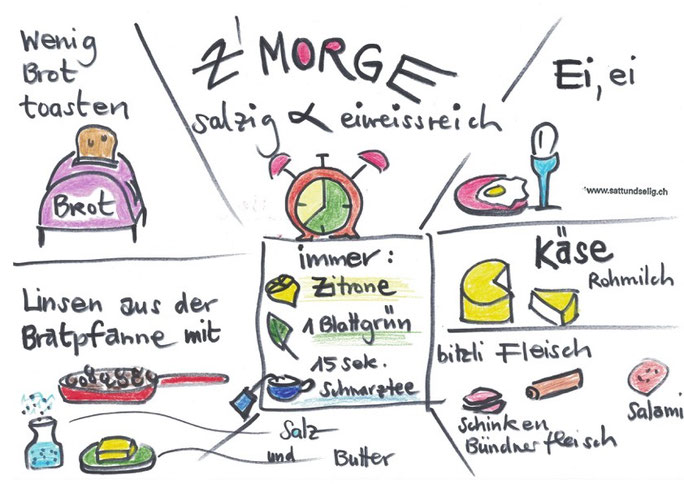 Z'MORGE
salzig & eiweissreich
Wenig
Brot
toasten
Brot
Ei, ei
*www.sattundselig.ch
Käse
Rohmilch
immer:
Zitrone
1 Blattgrün
15 sek.
Schwarztee
Linsen aus der
Bratpfanne mit
Salz
und Butter
bitzli Fleisch
Schinken
Bündnerfleisch
Salami